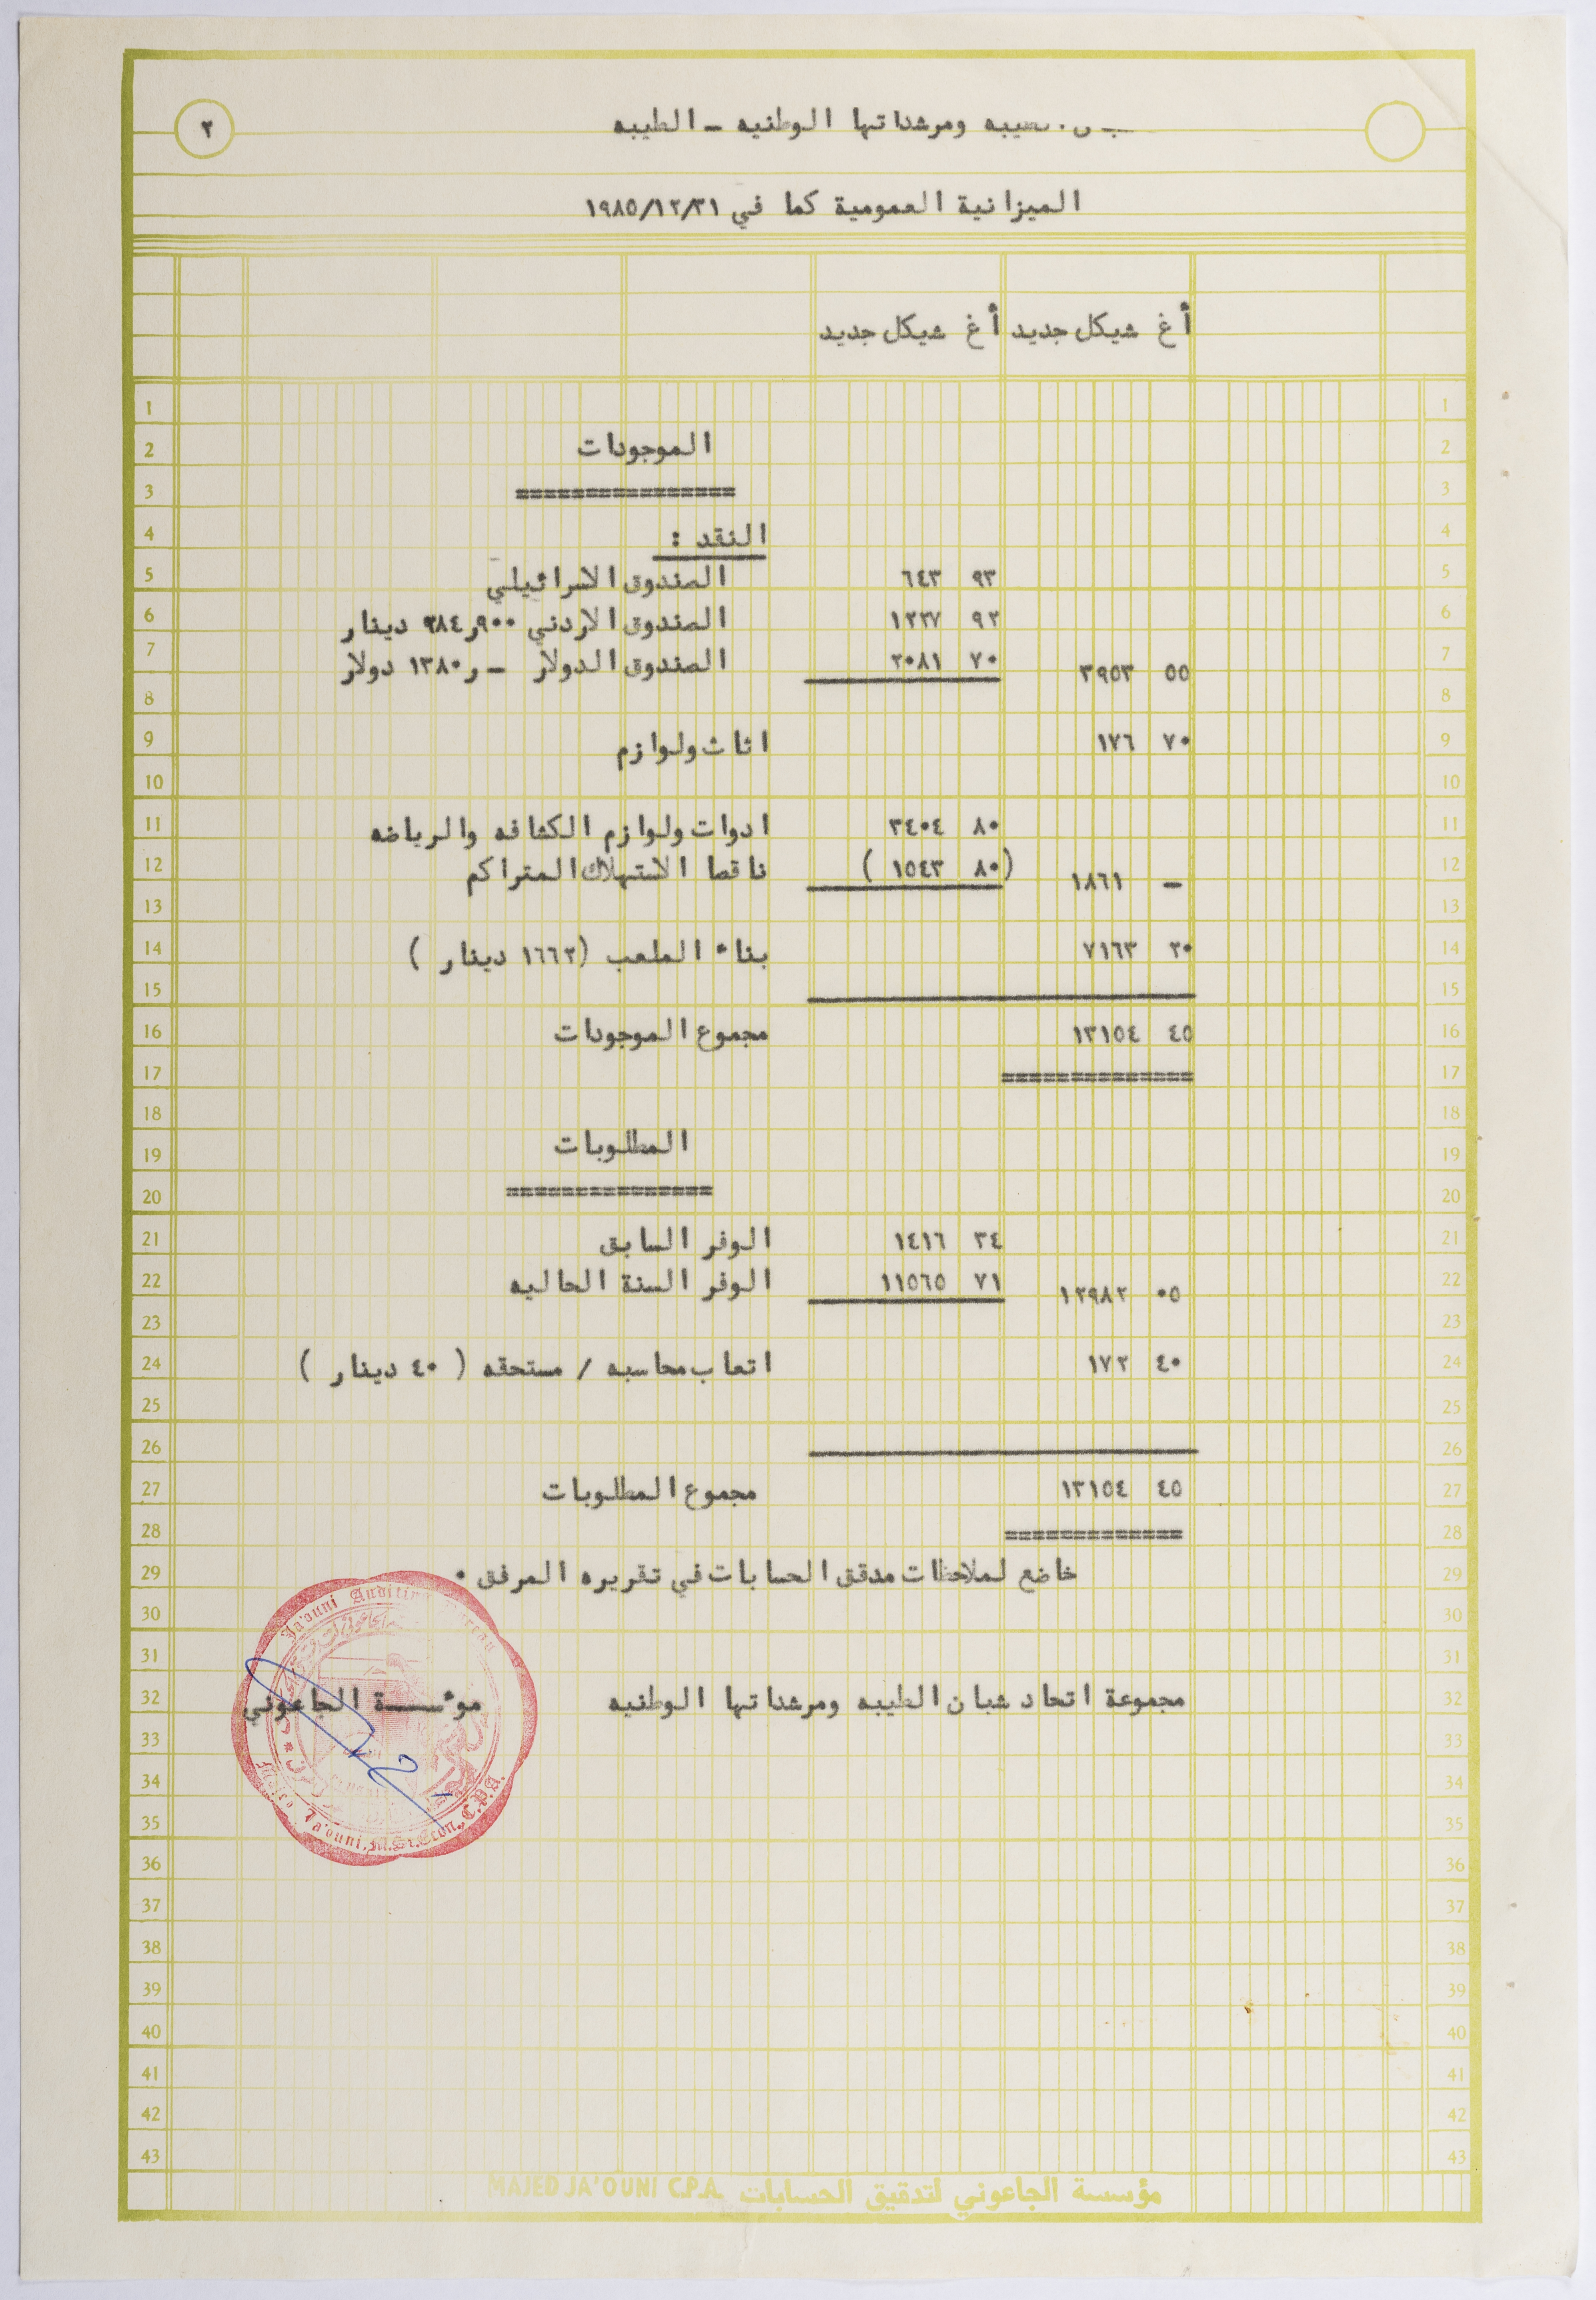 ومرشداتها الوطنيه - الطيبه
٢
الميزانية العمومية كما في ١٩٨٥/١٢/٣١
أغ شيكل جديد أغ شيكل جديد
الموجودات
النقد :
٩٣ ٦٤٣ الصندوق الاسرائيلي
٩٢ ١٢٢٧ الصندوق الاردني ٩٠٠ر٢٨٤ دينار
٥٥ ٣٩٥٣ ٧٠ ٢٠٨١ الصندوق الدولار -ر١٣٨٠ دولار
٧٠ ١٧٦ اثاث ولوازم
٨٠ ٣٤٠٤ ادوات ولوازم الكشافه والرياضه
- ١٨٦١ (٨٠ ١٥٤٣ ) ناقصا الاستهلاك المتراكم
٢٠ ٧١٦٣ بناء الملعب (١٦٦٢ دينار )
٤٥ ١٣١٥٤ مجموع الموجودات
المطلوبات
٣٤ ١٤١٦ الوفر السابق
٠٥ ١٢٩٨٢ ٧١ ١١٥٦٥ الوفر السنة الحاليه
٤٠ ١٧٢ اتعاب محاسبه / مستحقه ( ٤٠ دينار )
٤٥ ١٣١٥٤ مجموع المطلوبات
خاضع لملاحظات مدقق الحسابات في تقريره المرفق .
مجموعة اتحاد شبان الطيبه ومرشداتها الوطنيه مؤسسة الجاعوني
Ja'ouni Auditing Bureau
Majed Ja'ouni, M.Sc. Econ., C.P.A.
مؤسسة الجاعوني لتدقيق الحسابات MAJED JA'OUNI C.P.A.